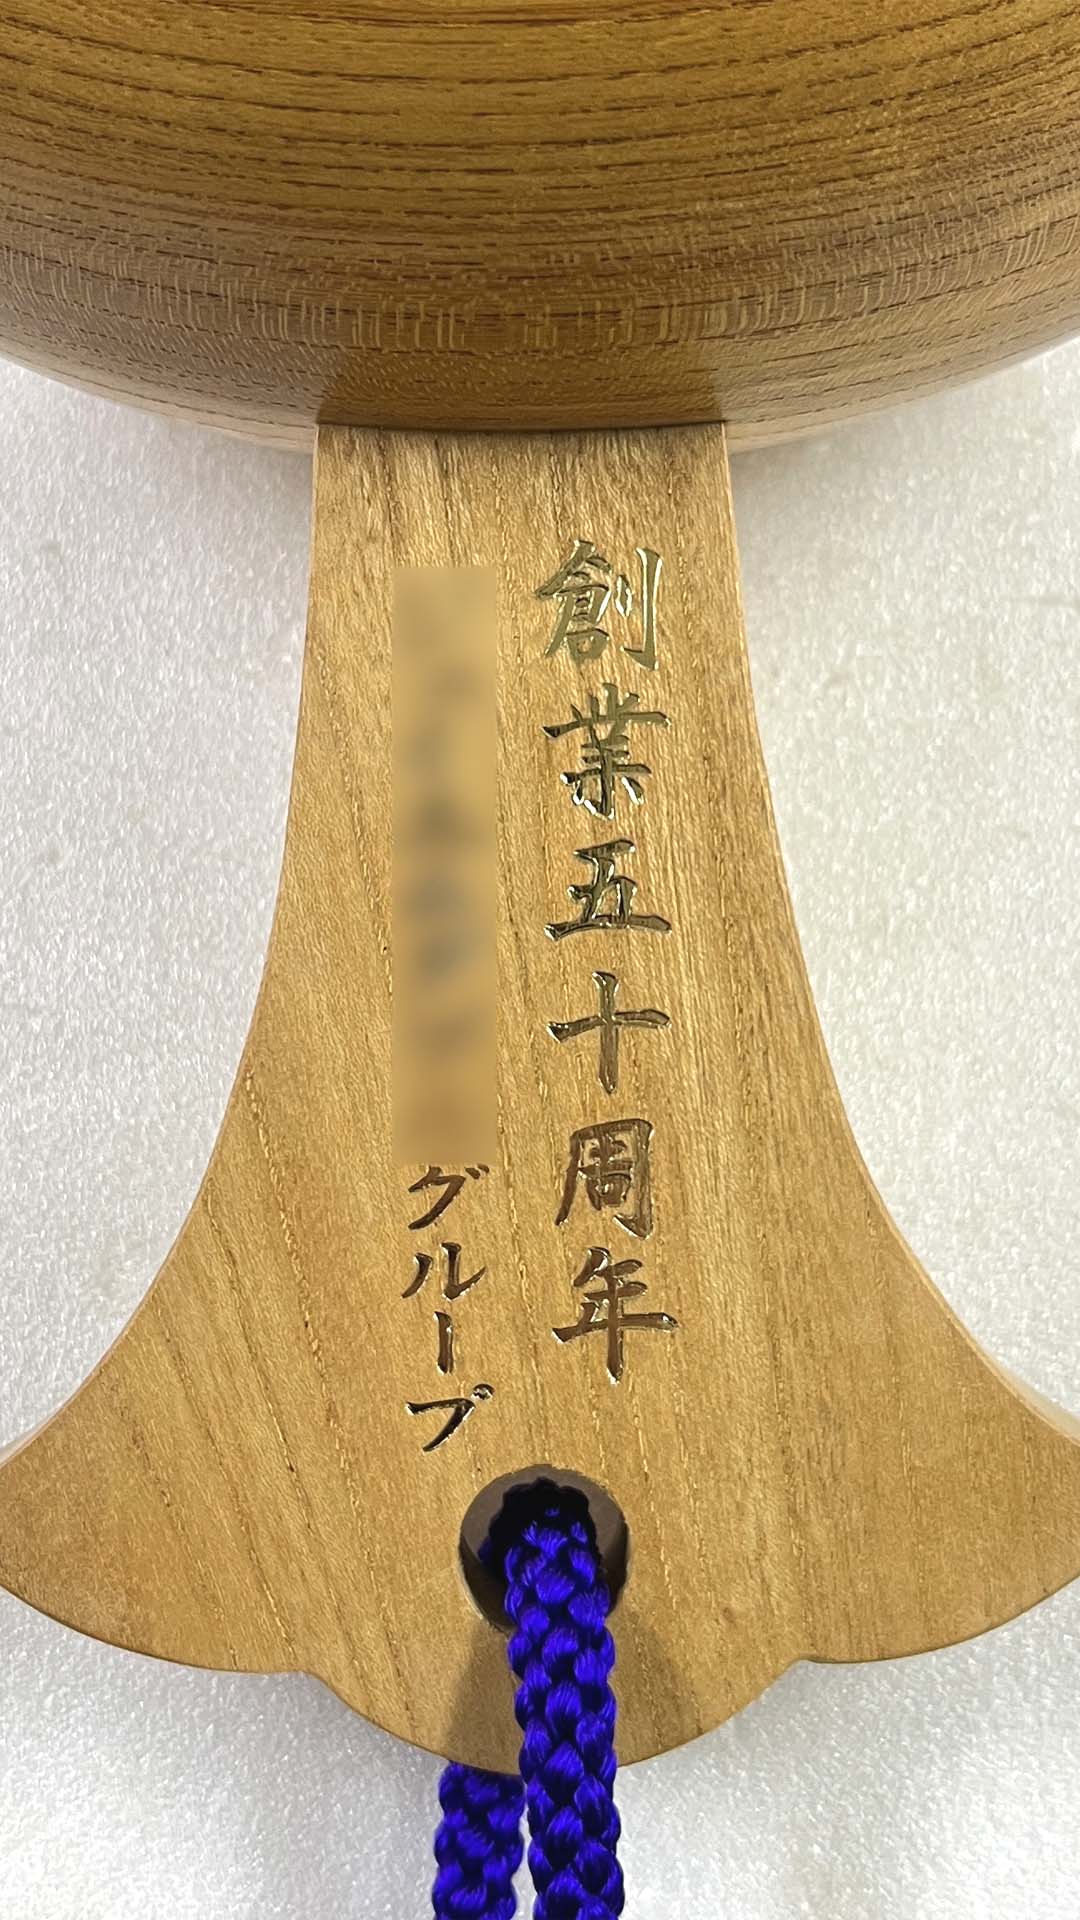 創業五十周年
グループ